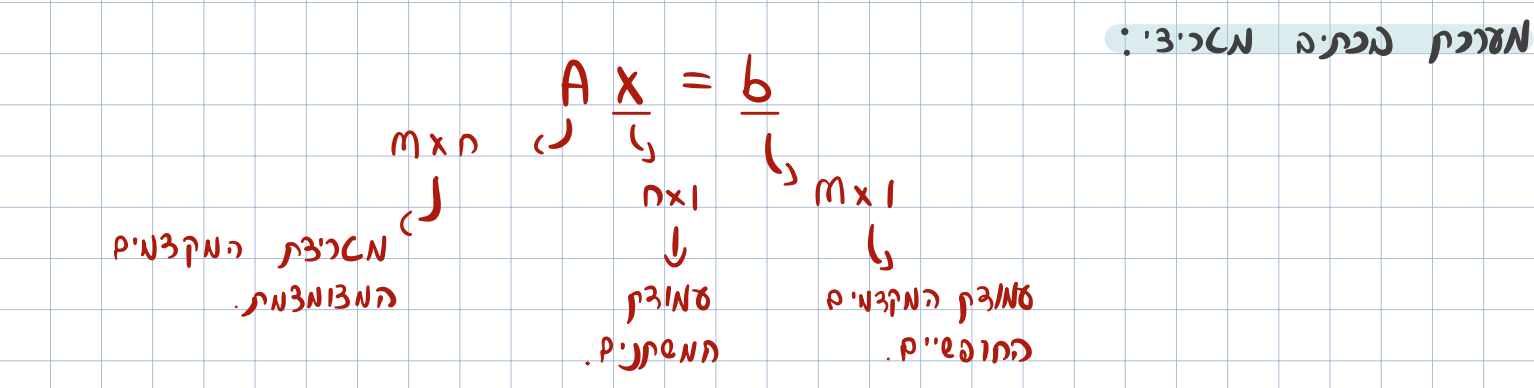 מערכת בכתיב מטריצי:
A x = b
m x n
n x 1
m x 1
מטריצת המקדמים
המצומצמת.
עמודת
המשתנים.
עמודת המקדמים
החופשיים.